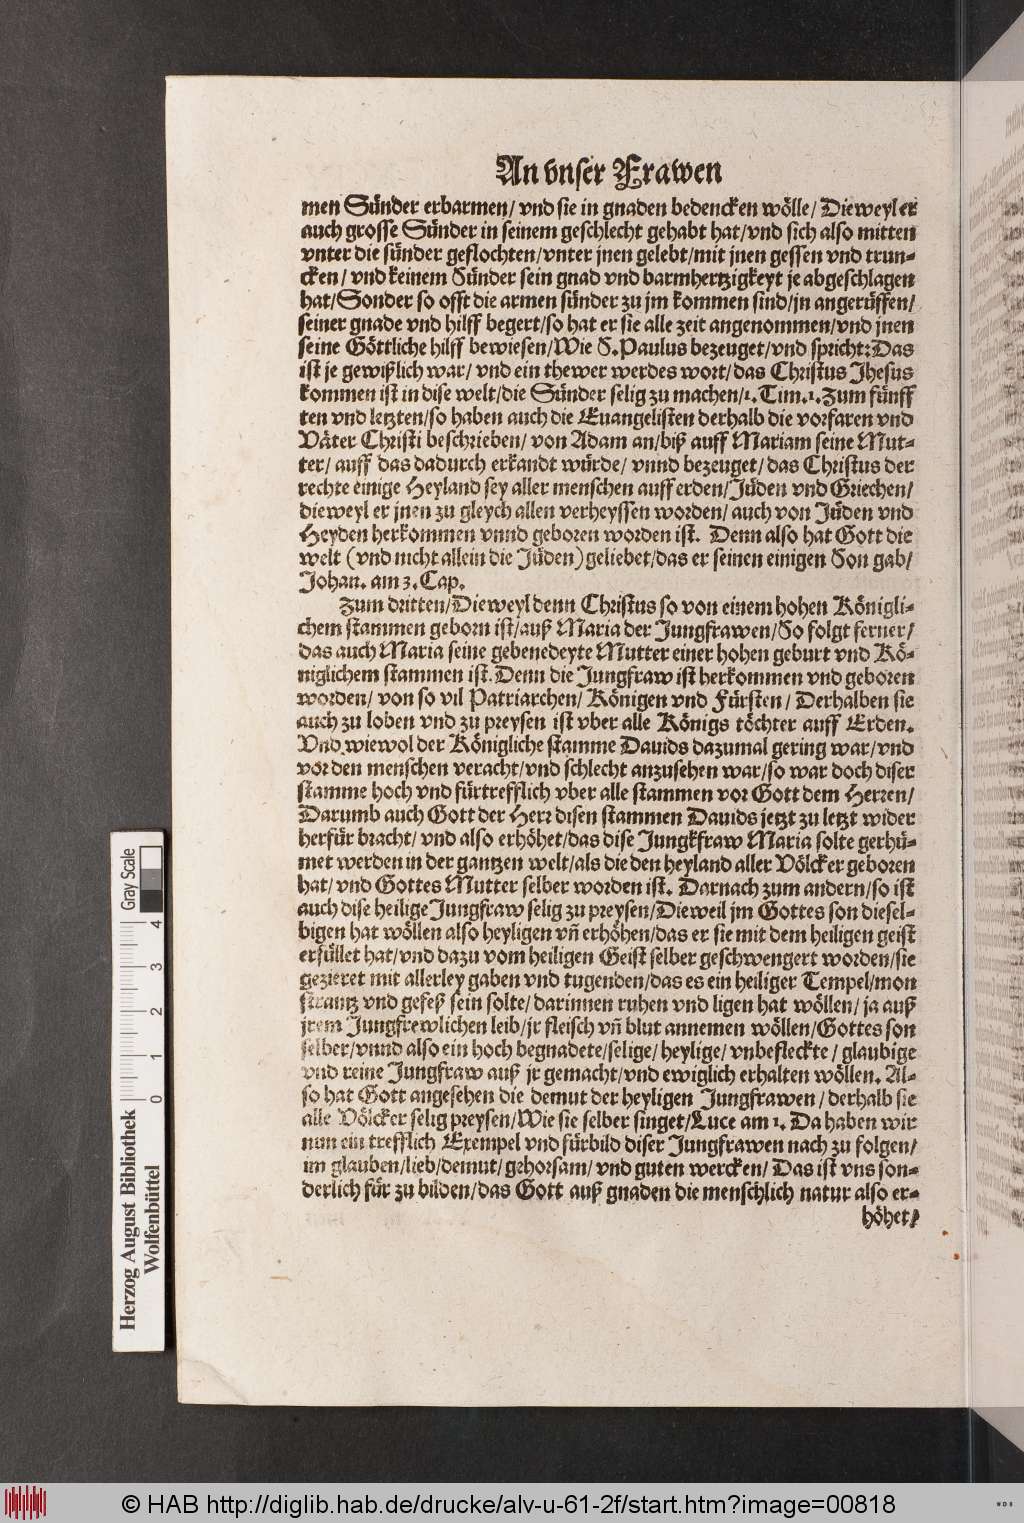 An vnser Frawen
men Sünder erbarmen/ vnd sie in gnaden bedencken wölle/ Dieweyl er
auch grosse Sünder in seinem geschlecht gehabt hat/vnd sich also mitten
vnter die sünder geflochten/vnter jnen gelebt/mit jnen gessen vnd trun-
cken/ vnd keinem Sünder sein gnad vnd barmhertzigkeyt je abgeschlagen
hat/Sonder so offt die armen sünder zu jm kommen sind/jn angerüffen/
seiner gnade vnd hilff begert/so hat er sie alle zeit angenommen/vnd jnen
seine Göttliche hilff bewiesen/Wie S.Paulus bezeuget/vnd spricht:Das
ist je gewißlich war/ vnd ein thewer werdes wort/das Christus Jhesus
kommen ist in dise welt/die Sünder selig zu machen/1.Tim.1.Zum fünff
ten vnd letzten/so haben auch die Euangelisten derhalb die vorfaren vnd
Väter Christi beschrieben/ von Adam an/biß auff Mariam seine Mut-
ter/ auff das dadurch erkandt würde/ vnnd bezeuget/das Christus der
rechte einige Heyland sey aller menschen auff erden/Jüden vnd Griechen/
dieweyl er jnen zu gleych allen verheyssen worden/ auch von Jüden vnd
Heyden herkommen vnnd geboren worden ist. Denn also hat Gott die
welt (vnd nicht allein die Jüden)geliebet/das er seinen einigen Son gab/
Johan. am 3.Cap.
Zum dritten/Dieweyl denn Christus so von einem hohen Königli-
chem stammen geborn ist/auß Maria der Jungfrawen/So folgt ferner/
das auch Maria seine gebenedeyte Mutter einer hohen geburt vnd Kö-
niglichem stammen ist.Denn die Jungfraw ist herkommen vnd geboren
worden/ von so vil Patriarchen/ Königen vnd Fürsten/ Derhalben sie
auch zu loben vnd zu preysen ist vber alle Königs töchter auff Erden.
Vnd wiewol der Königliche stamme Dauids dazumal gering war/vnd
vor den menschen veracht/vnd schlecht anzusehen war/so war doch diser
stamme hoch vnd fürtrefflich vber alle stammen vor Gott dem Herren/
Darumb auch Gott der Herr disen stammen Dauids jetzt zu letzt wider
herfür bracht/ vnd also erhöhet/das dise Jungkfraw Maria solte gerhü-
met werden in der gantzen welt/als die den heyland aller Völcker geboren
hat/ vnd Gottes Mutter selber worden ist. Darnach zum andern/so ist
auch dise heilige Jungfraw selig zu preysen/Dieweil jm Gottes son diesel-
bigen hat wöllen also heyligen vñ erhöhen/das er sie mit dem heiligen geist
erfüllet hat/vnd dazu vom heiligen Geist selber geschwengert worden/sie
gezieret mit allerley gaben vnd tugenden/das es ein heiliger Tempel/mon
strantz vnd gefeß sein solte/ darinnen ruhen vnd ligen hat wöllen/ ja auß
jrem Jungfrewlichen leib/jr fleisch vñ blut annemen wöllen/Gottes son
selber/vnnd also ein hoch begnadete/selige/ heylige/ vnbefleckte/ glaubige
vnd reine Jungfraw auß jr gemacht/vnd ewiglich erhalten wöllen. Al-
so hat Gott angesehen die demut der heyligen Jungfrawen/ derhalb sie
alle Völcker selig preysen/Wie sie selber singet/Luce am 1. Da haben wir
nun ein trefflich Exempel vnd fürbild diser Jungfrawen nach zu folgen/
im glauben/lieb/demut/ gehorsam/ vnd guten wercken/ Das ist vns son-
derlich für zu bilden/das Gott auß gnaden die menschlich natur also er-
höhet/
Herzog August Bibliothek
Wolfenbüttel
0 1 2 3 4
Gray Scale
© HAB http://diglib.hab.de/drucke/alv-u-61-2f/start.htm?image=00818